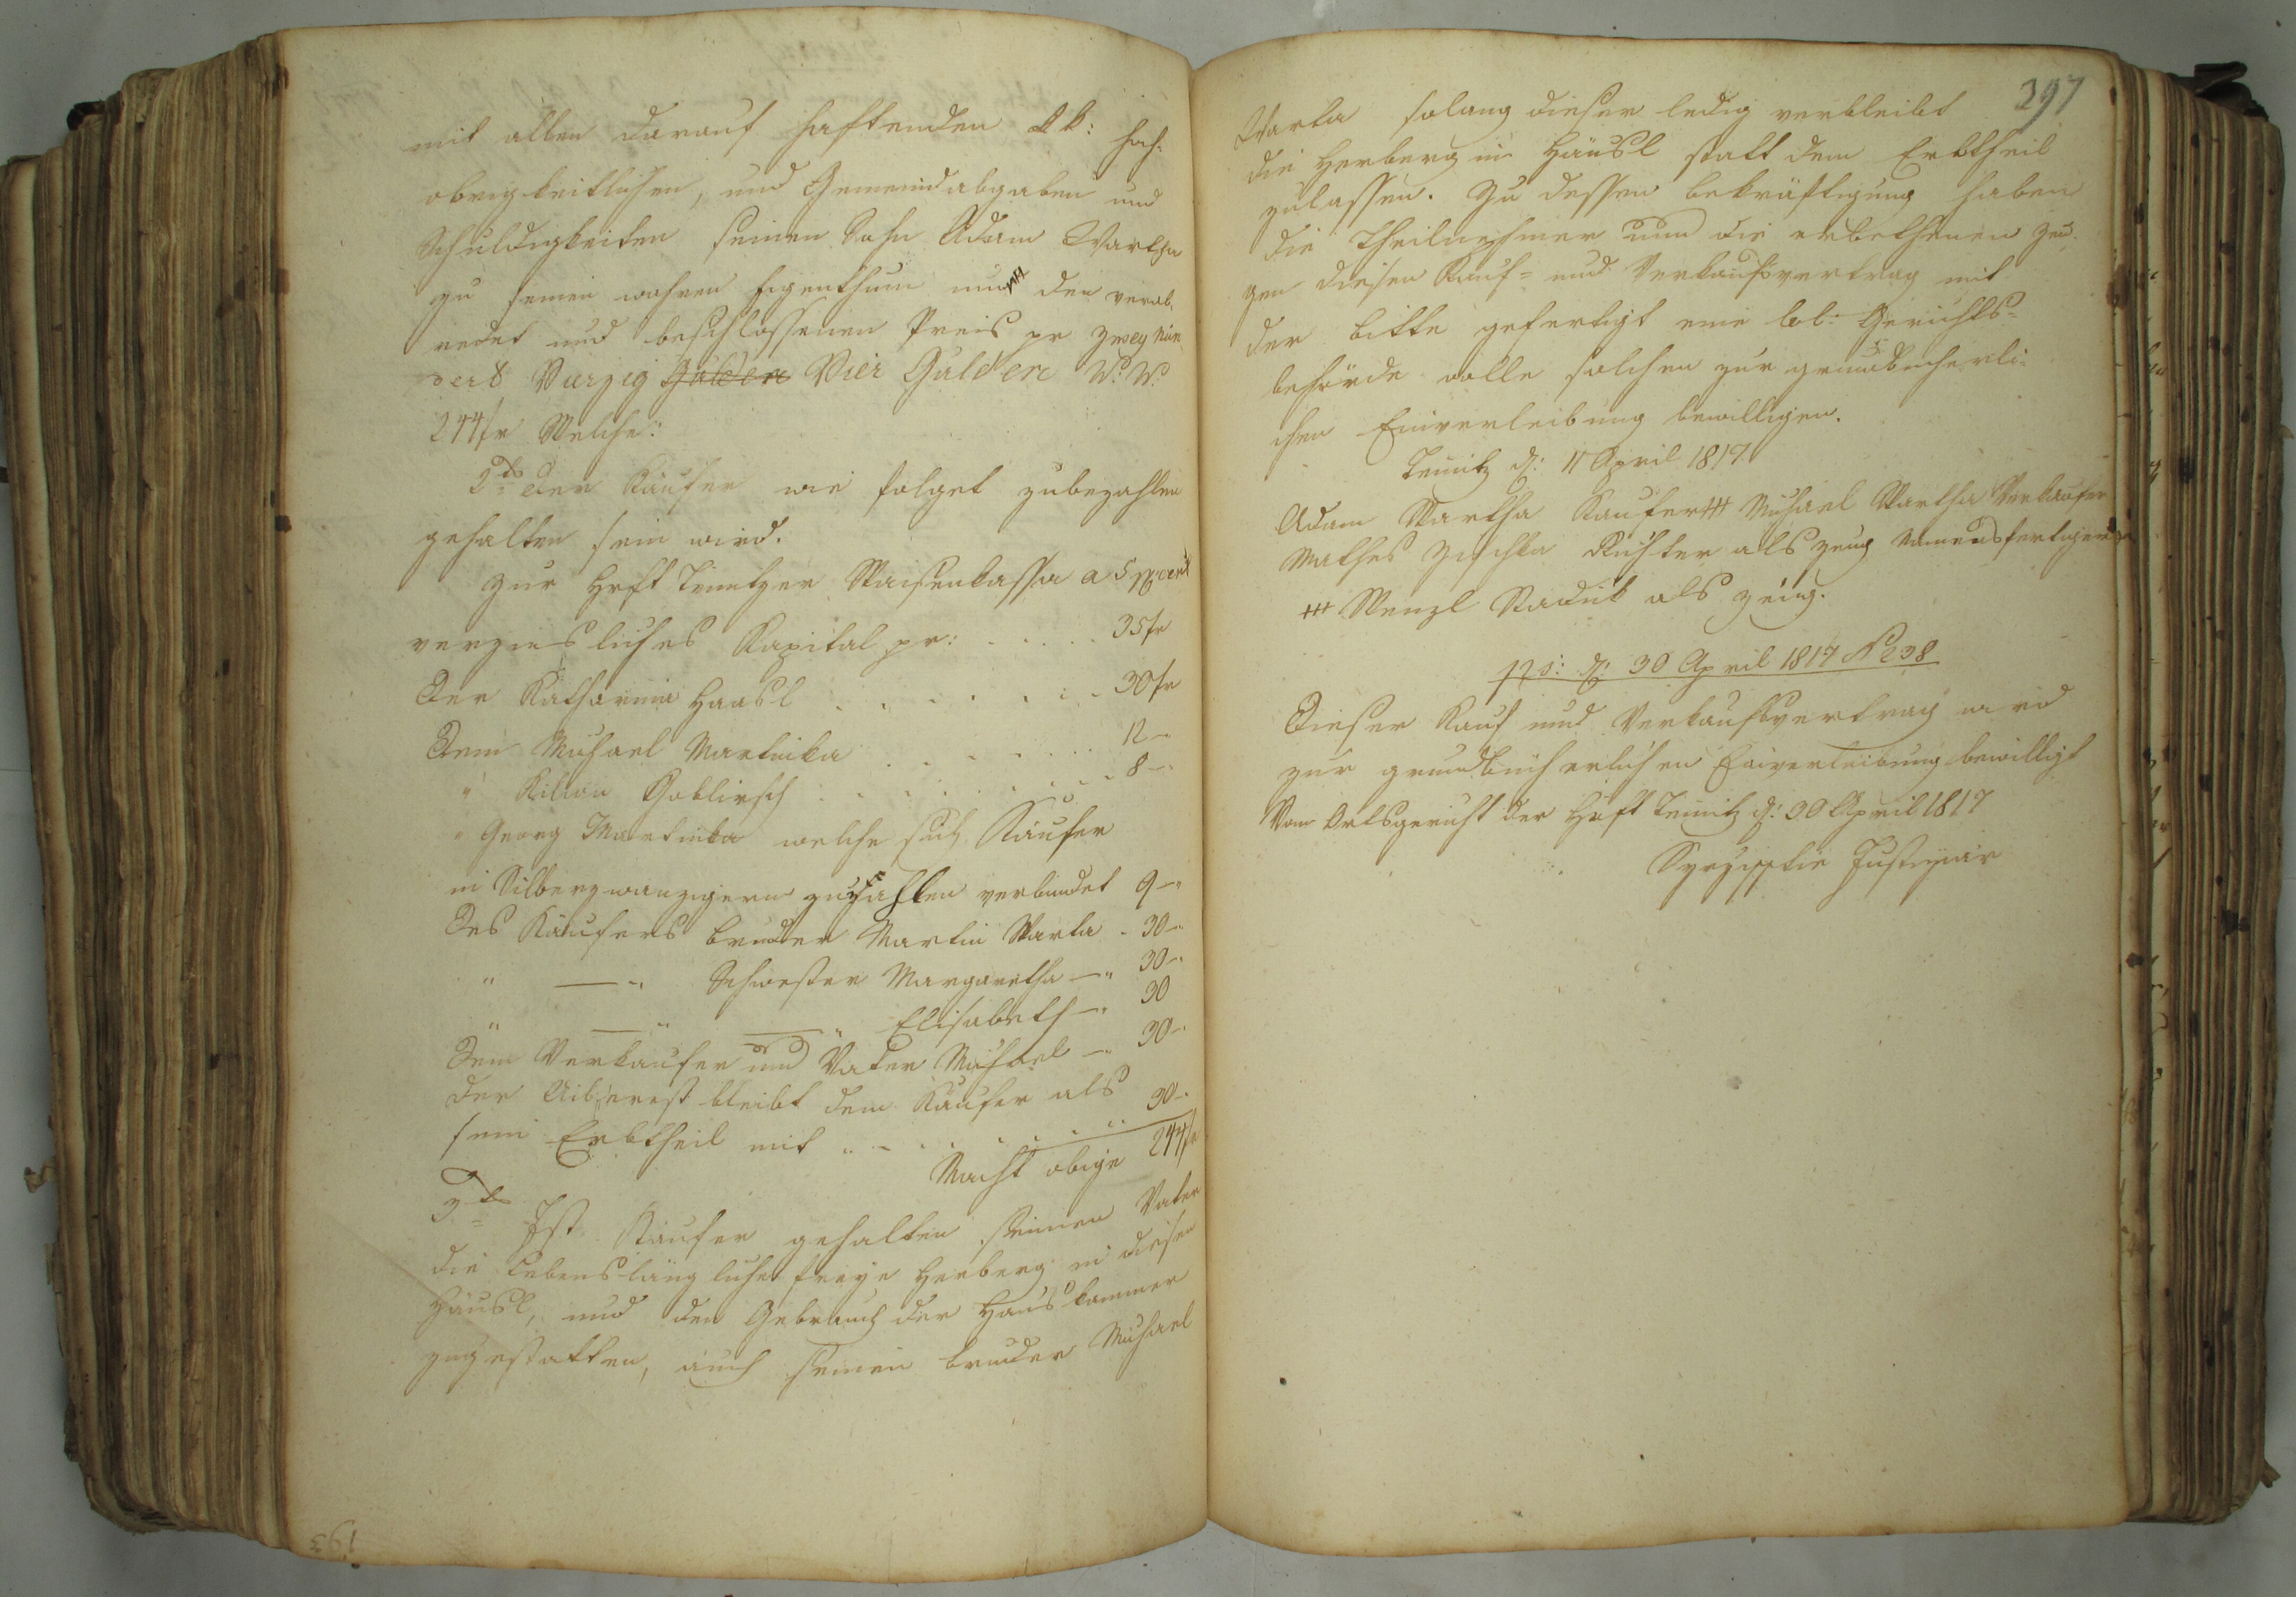 mit allen darauf haftenden kk: hoch-
obrigkeitlichen, und Gemeindabgaben und
Schuldigkeiten seinen Sohn Adam Wartha
zu seinen wahren Eigenthum um den verab-
redet und beschlossenen Preis pr zwey hun-
dert Vierzig Gulden Vier Gulden W: W:
244 fr Welche:
2tens der Käufer wie folget zubezahlen
gehalten sein wird.
Zur Hrft Teinitzer Waisenkassa a 5 pcent
verzinsliches Kapital pr: . . . . 35 fr
Der Katharina Haasl . . . . . . 30 fr
Dem Michael Martinka . . . . . 12 –"
" Kilian Goblirsch . . . . . . . 8 –"
" Georg Martinka welche sich Käufer
in Silberzwanzigern zuzahlen verbindet 9 –"
Des Käufers bruder Martin Warta . 30 –"
" —" Schwester Margaretha —" 30 –"
" —" —" Elisabeth —" 30
Dem Verkaufer und Vater Michael —" 30 –"
Der Uiberrest bleibt dem Käufer als
sein Erbtheil mit . . . . . . . 30 –"
Macht obige 244 fr
3tens Ist Käufer gehalten seinen Vater
die lebenslängliche freye Herberg in diesen
Häusl, und den Gebrauch der Hauskammer
zugestatten, auch seinen bruder Michael
193
297
Warta solang dieser ledig verbleibt
die Herberg in Häusl statt dem Erbtheil
zulassen. Zu dessen bekräftigung haben
die Theilnehmer und die erbethenen Zeu-
gen diesen Kauf- und Verkaufsvertrag mit
der bitte gefertigt eine lobl: Gerichts-
behörde wolle solchen zur grundbücherli-
chen Einverleibung bewilligen.
Teinitz d: 11 April 1817
Adam Wartha Kaufer +++ Michael Wartha Verkaufer
Mathes Zischka Richter als Zeug Namensfertiger
+++ Wenzl als Zeug.
ps: d: 30 April 1817 N 238
Dieser Kauf und Verkaufsvertrag wird
zur grundbücherlichen Einverleibung bewilligt
Vom Ortsgericht der Hrft Teinitz d: 30 April 1817
Justiziär